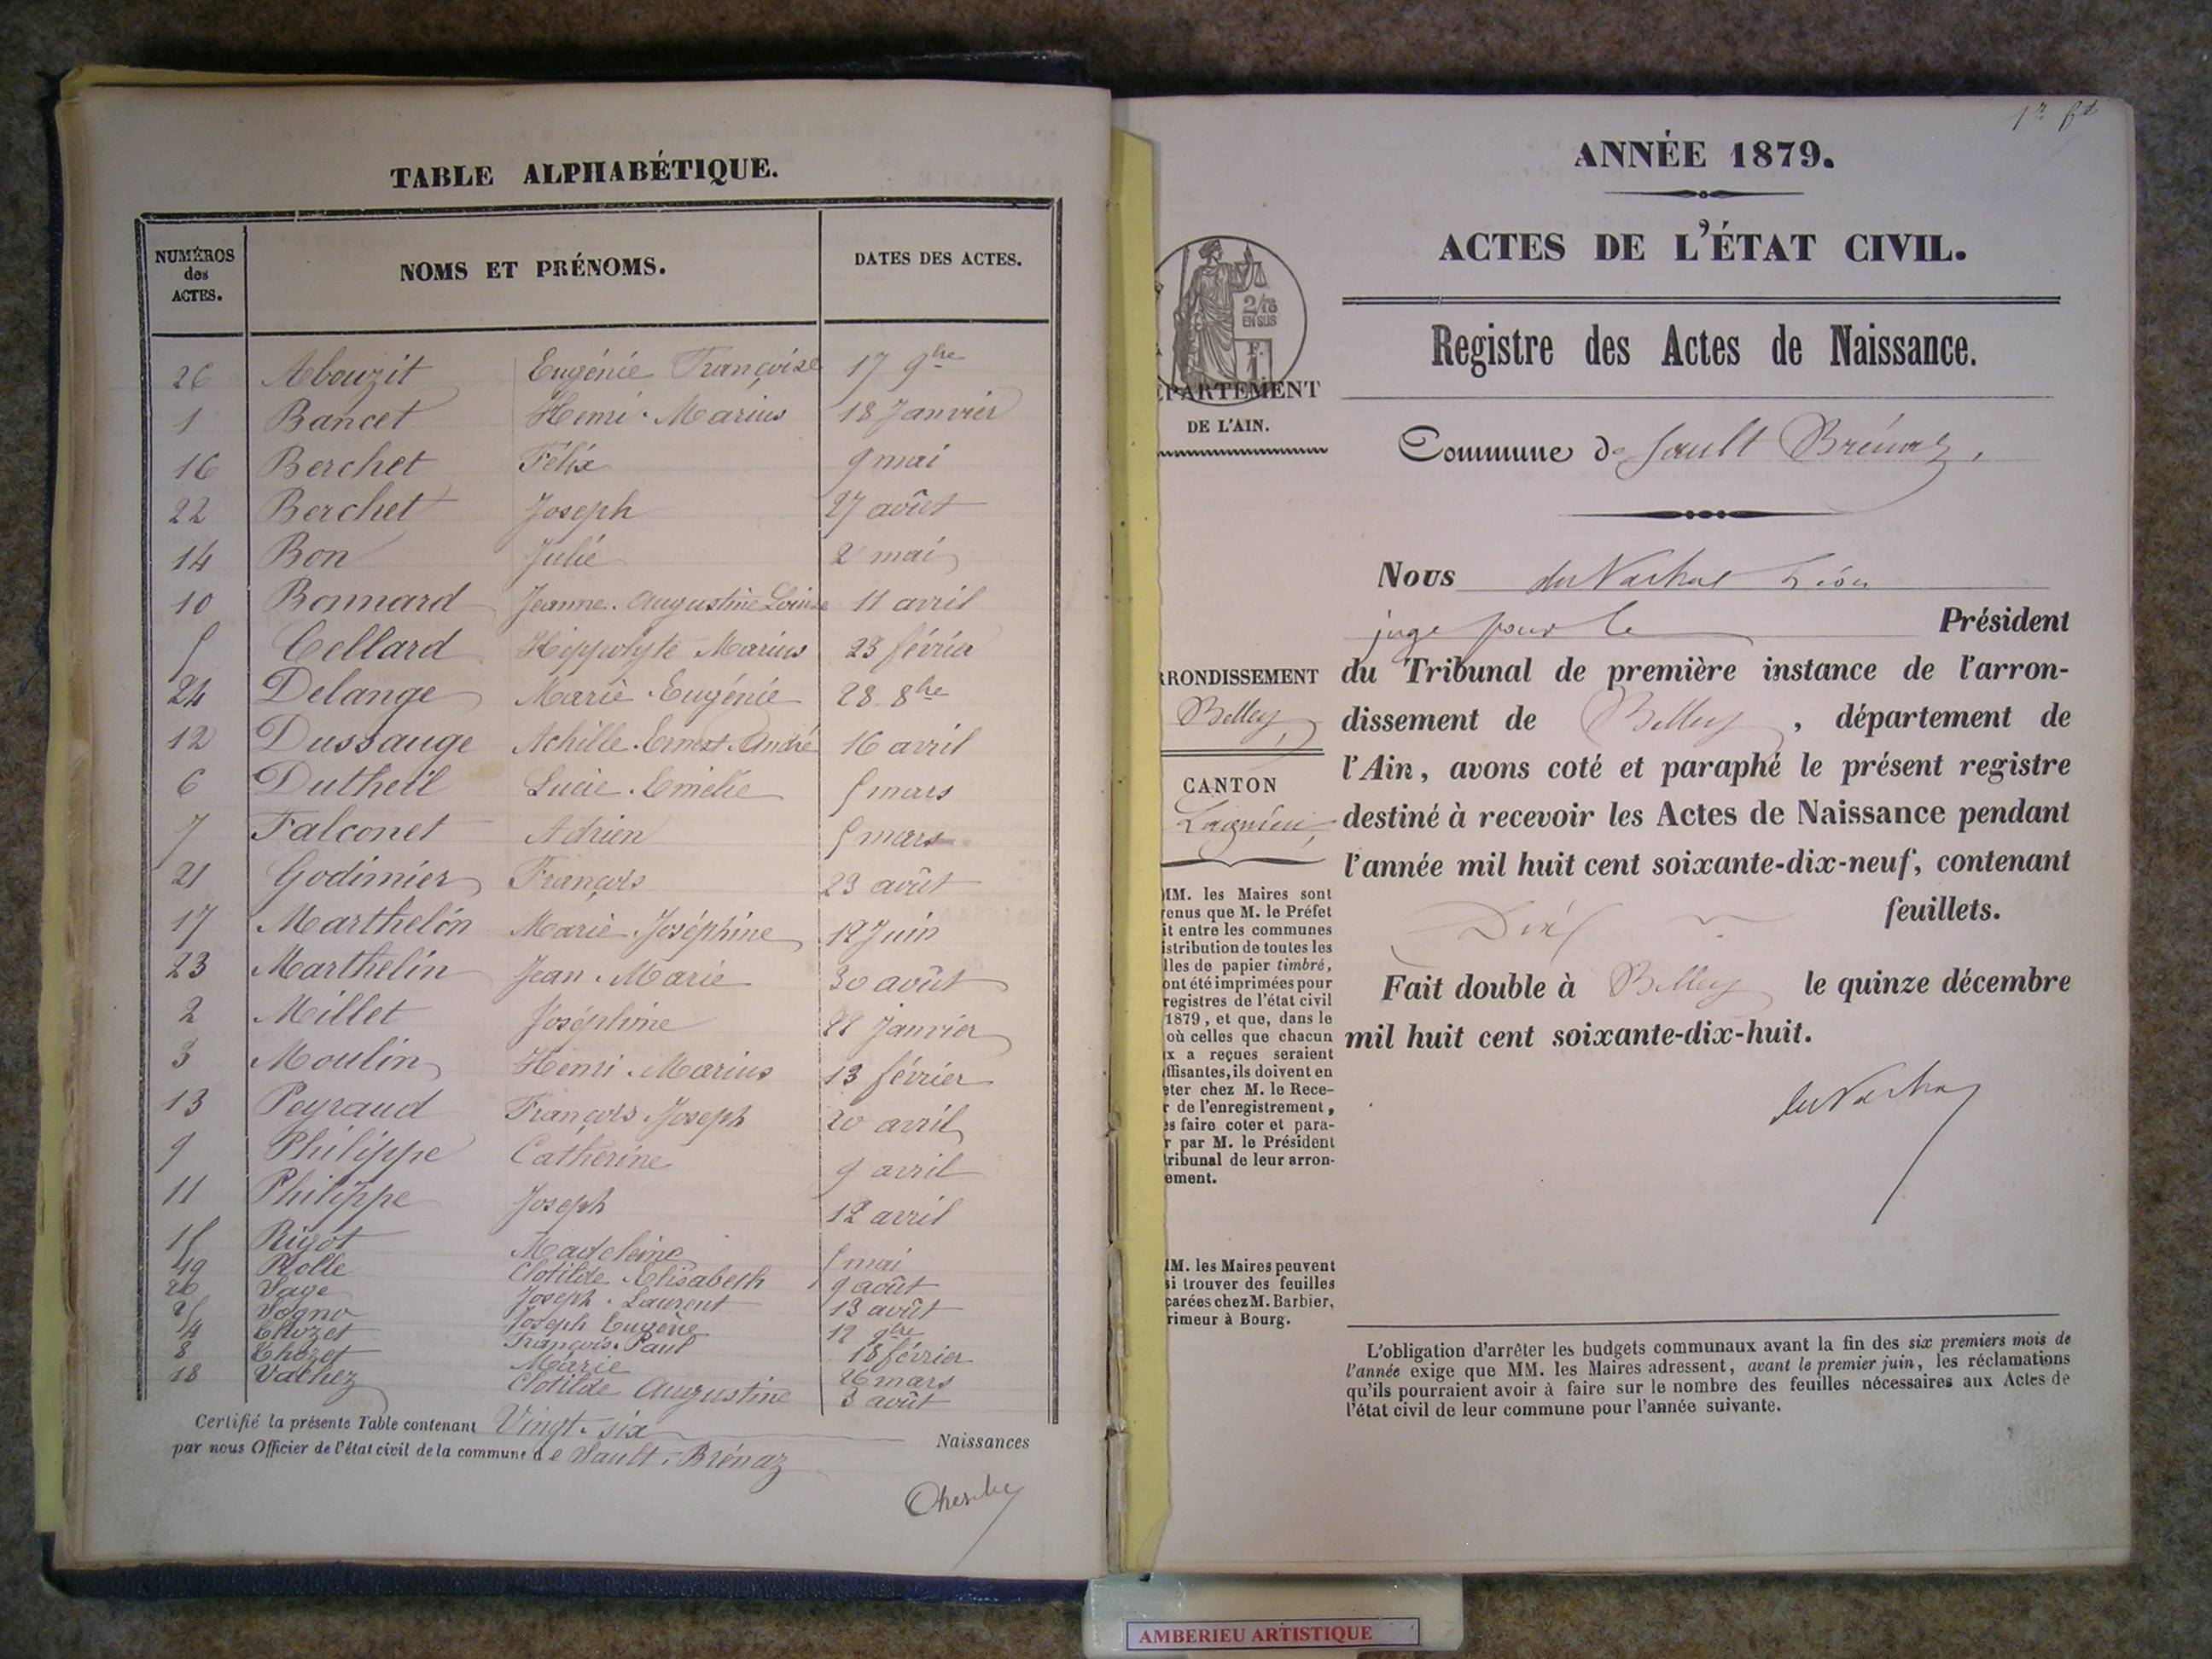 TABLE ALPHABÉTIQUE.
NUMÉROS des ACTES. NOMS ET PRÉNOMS. DATES DES ACTES.
26 Abouzit Eugénie Françoise 17 9bre
1 Bancet Henri. Marius 18 Janvier
16 Berchet Félix 9 mai
22 Berchet Joseph 27 août
14 Bon Julie 2 mai
10 Bonnard Jeanne. Augustine Louise 11 avril
5 Cellard Hippolyte Marius 23 févrie
24 Delange Marie. Eugénie 28 8bre
12 Dussauge Achille. Ernest. André 16 avril
6 Dutheil Lucie. Emélie 5 mars
7 Falconet Adrien 5 mars
21 Godimier François 23 août
17 Marthelon Marie. Joséphine 12 Juin
23 Marthelin Jean. Marie 30 août
2 Millet Joséphine 22 Janvier
3 Moulin Henri. Marius 13 février
13 Peyraud François. Joseph 20 avril
9 Philippe Catherine 9 avril
11 Philippe Joseph 12 avril
15 Rigot Madeleine 5 mai
19 Rolle Clotilde Elisabeth 9 août
20 Saye Joseph. Laurent 13 août
25 Sogno Joseph Eugène 12 9bre
4 Thozet François. Paul 18 février
8 Thozet Marie 26 mars
18 Vachez Clotilde Augustine 3 août
Certifié la présente Table contenant Vingt. six Naissances
par nous Officier de l'état civil de la commune de Sault. Brénaz
1er ft
ANNÉE 1879.
ACTES DE L'ÉTAT CIVIL.
2/10
EN SUS
Registre des Actes de Naissance.
ÉPARTEMENT
DE L'AIN.
Commune de Sault Brénaz,
Nous Léon
juge pour le Président
RRONDISSEMENT
Belley,
du Tribunal de première instance de l'arron-
dissement de Belley, département de
l'Ain, avons coté et paraphé le présent registre
CANTON
Lagnieu,
destiné à recevoir les Actes de Naissance pendant
l'année mil huit cent soixante-dix-neuf, contenant
Dix feuillets.
Fait double à Belley le quinze décembre
mil huit cent soixante-dix-huit.
MM. les Maires sont
enus que M. le Préfet
it entre les communes
istribution de toutes les
lles de papier timbré,
ont été imprimées pour
registres de l'état civil
1879, et que, dans le
où celles que chacun
x a reçues seraient
ffisantes, ils doivent en
eter chez M. le Rece-
r de l'enregistrement,
es faire coter et para-
r par M. le Président
tribunal de leur arron-
ement.
MM. les Maires peuvent
si trouver des feuilles
parées chez M. Barbier,
rimeur à Bourg.
L'obligation d'arrêter les budgets communaux avant la fin des six premiers mois de
l'année exige que MM. les Maires adressent, avant le premier juin, les réclamations
qu'ils pourraient avoir à faire sur le nombre des feuilles nécessaires aux Actes de
l'état civil de leur commune pour l'année suivante.
AMBERIEU ARTISTIQUE